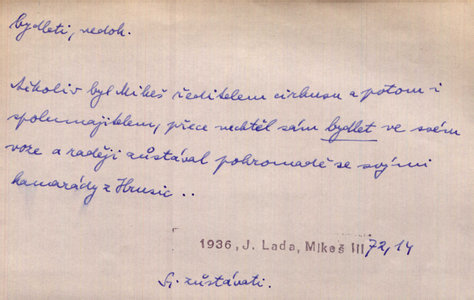 bydleti, nedok.
Ačkoliv byl Mikeš ředitelem cirkusu a potom i
spolumajitelem, přece nechtěl sám bydlet ve svém
voze a raději zůstával pohromadě se svými
kamarády z Hrusic..
1936, J. Lada, Mikeš III 72,14
Sr. zůstávati.